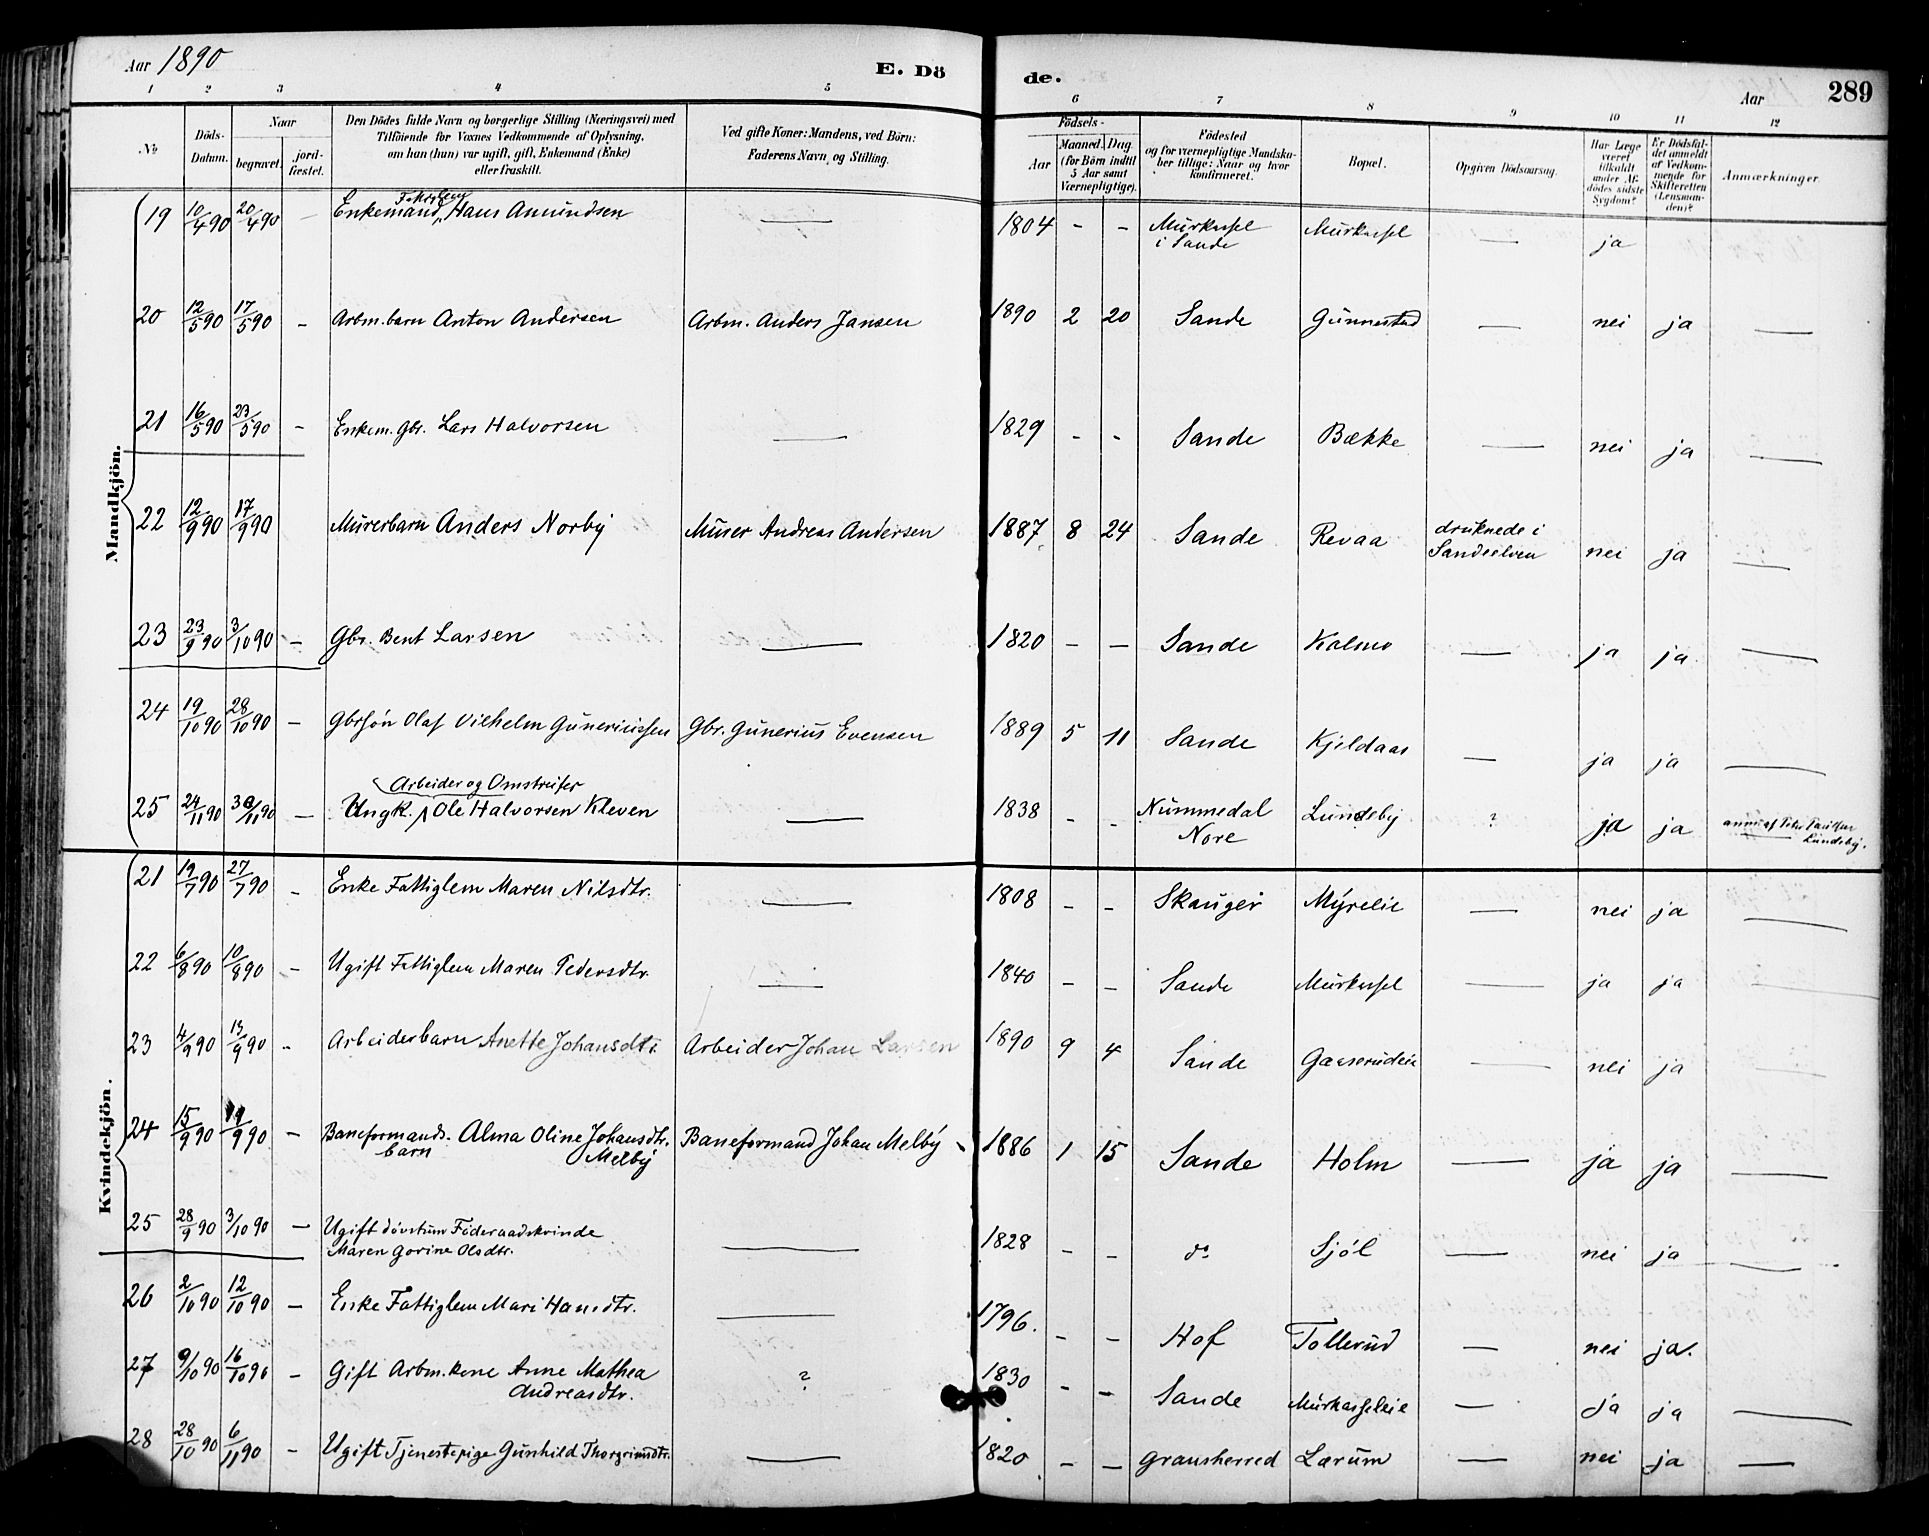 Aar 1890
E. Dö
de.
Aar
289
1 2 3 4 5 6 7 8 9 10 11 12
№
Döds-
Datum.
Naar
begravet.
jord-
fæstet.
Den Dödes fulde Navn og borgerlige Stilling (Næringsvei) med
Tilföiende for Voxnes Vedkommende af Oplysning,
om han (hun) var ugift, gift, Enkemand (Enke)
eller fraskilt.
Ved gifte Koner: Mandens, ved Börn:
Faderens Navn og Stilling.
Födsels-
Aar
Maaned. Dag
(for Börn indtil
5 Aar samt
Værnepligtige).
Födested
og for værnepligtige Mandska-
ber tillige: Naar og hvor
konfirmeret.
Bopæl.
Opgiven Dödsaarsag.
Har Læge
været
tilkaldt
under Af-
dödes sidste
Sygdom?
Er Dödsfal-
det anmeldt
af Vedkom-
mende for
Skifteretten
(Lensman-
den)?
Anmærkninger.
Mandkjön.
19 10/4 90 20/4 90 – Enkemand, Hans Amundsen — 1804 – – Murkassel i Sande Murkassel — ja
20 12/5 90 17/5 90 – Arbm. barn Anton Andersen Arbm. Anders Jansen 1890 2 20 Sande Gunnestad — nei ja —
21 16/5 90 23/5 90 – Enkem. Gbr. Lars Halvorsen — 1829 – – Sande Bække — nei ja —
22 12/9 90 17/9 90 Murerbarn Anders Norby Murer Andreas Andersen 1887 8 24 Sande Revaa druknede i Sandeelven nei ja —
23 23/9 90 3/10 90 – Gbr. Bent Larsen — 1820 – – Sande Kalmo — ja ja —
24 19/10 90 28/10 90 – Gbrsøn Olaf Vilhelm Guneriussen Gbr. Gunerius Evensen 1889 5 11 Sande Kjeldaas — ja ja —
Arbeider og Omstreifer
25 24/11 90 30/11 90 – Ungk. Ole Halvorsen Kleven — 1838 – – Nummedal Nore Lundeby ? ja ja
Lundeby.
Kvindekjön.
21 19/7 90 27/7 90 – Enke Fattiglem Maren Nilsdtr. — 1808 – – Skauger Myreeie — nei ja —
22 6/8 90 10/8 90 – Ugift Fattiglem Maren Pedersdtr. — 1840 – – Sande Murkassel — ja ja —
23 4/9 90 13/9 90 – Arbeiderbarn Anette Johansdtr. Arbeider Johan Larsen 1890 9 4 Sande — nei ja —
24 15/9 90 19/9 90 – Baneformands- Alma Oline Johansdtr. Baneformand Johan Melby 1886 1 15 Sande Holm — ja ja —
barn Melby
25 28/9 90 3/10 90 – Ugift døvstum Føderaadskvinde — 1828 – – do Sjøl — nei ja —
Maren Gorine Olsdtr.
26 2/10 90 12/10 90 – Enke Fattiglem Mari Hansdtr. — 1796. – – Hof Tollerud — nei ja.
27 9/10 90 16/10 90 – Gift Arbm. kone Anne Mathea ? 1830 – – Sande Murkasseleie — ja ja —
Andreasdtr.
28 28/10 90 6/11 90 – Ugift Tjenestepige Gunhild Thorgrimsdtr. — 1820 – – Gransherred Lærum — nei ja —